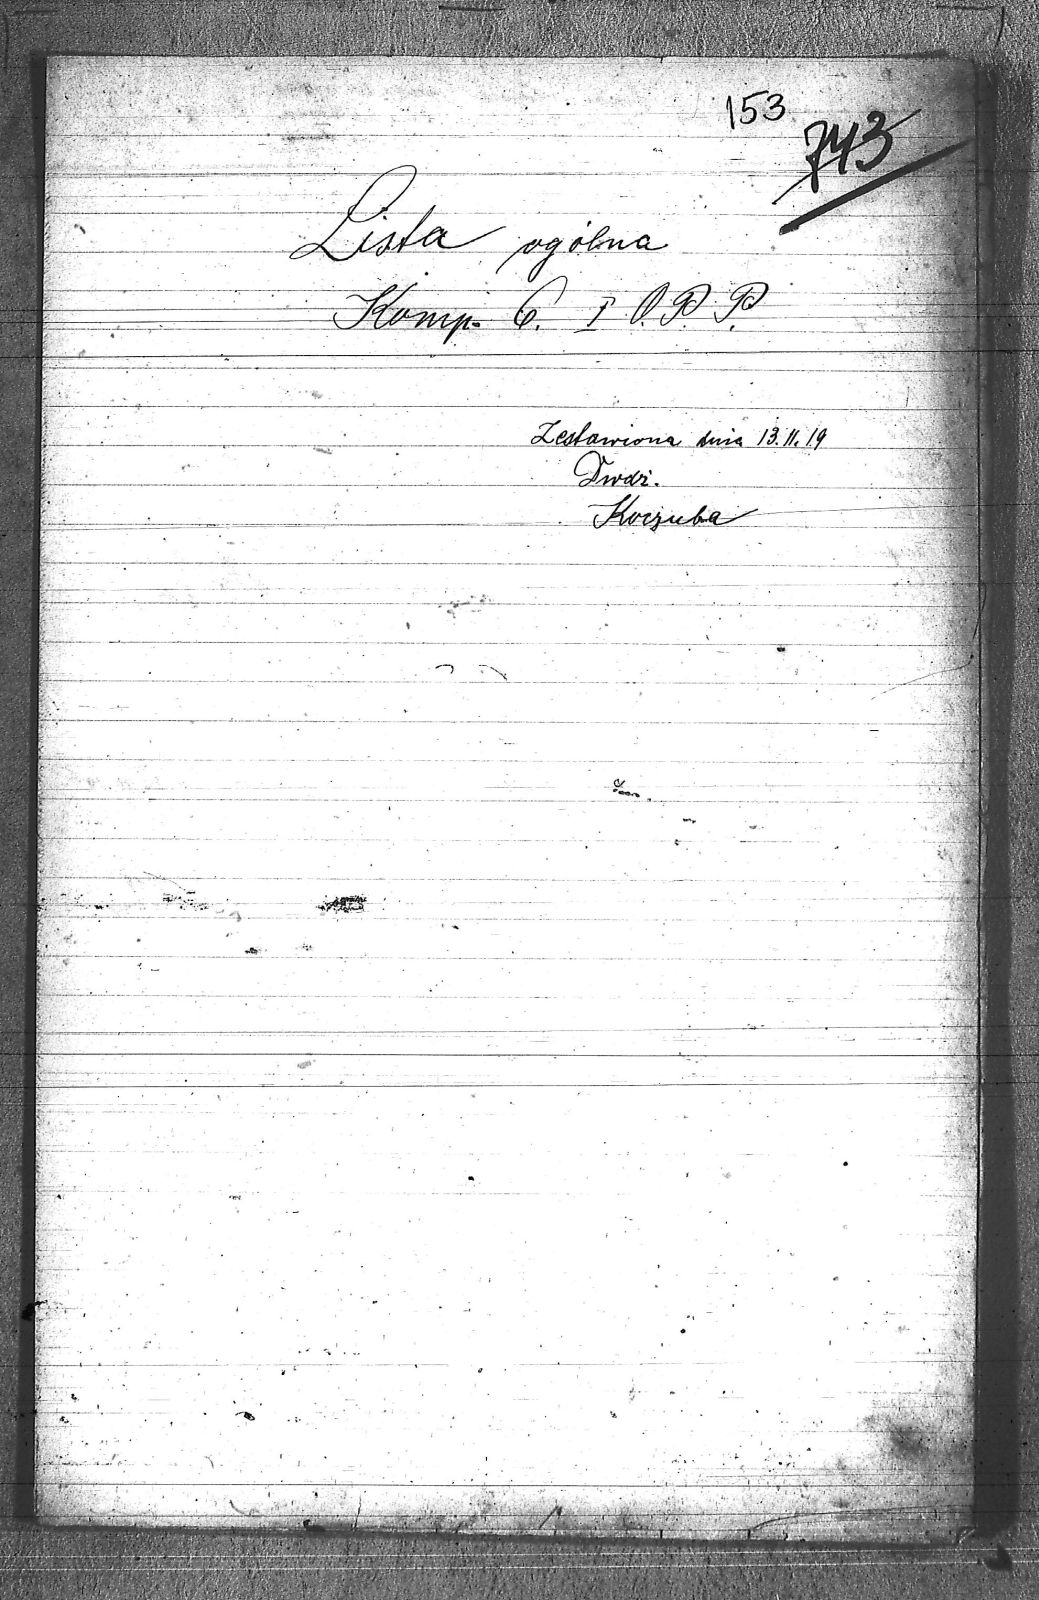 153
743
Lista ogólna
Komp. 6. I O. P. P.
Zestawiona dnia 13.11.19
Koczuba